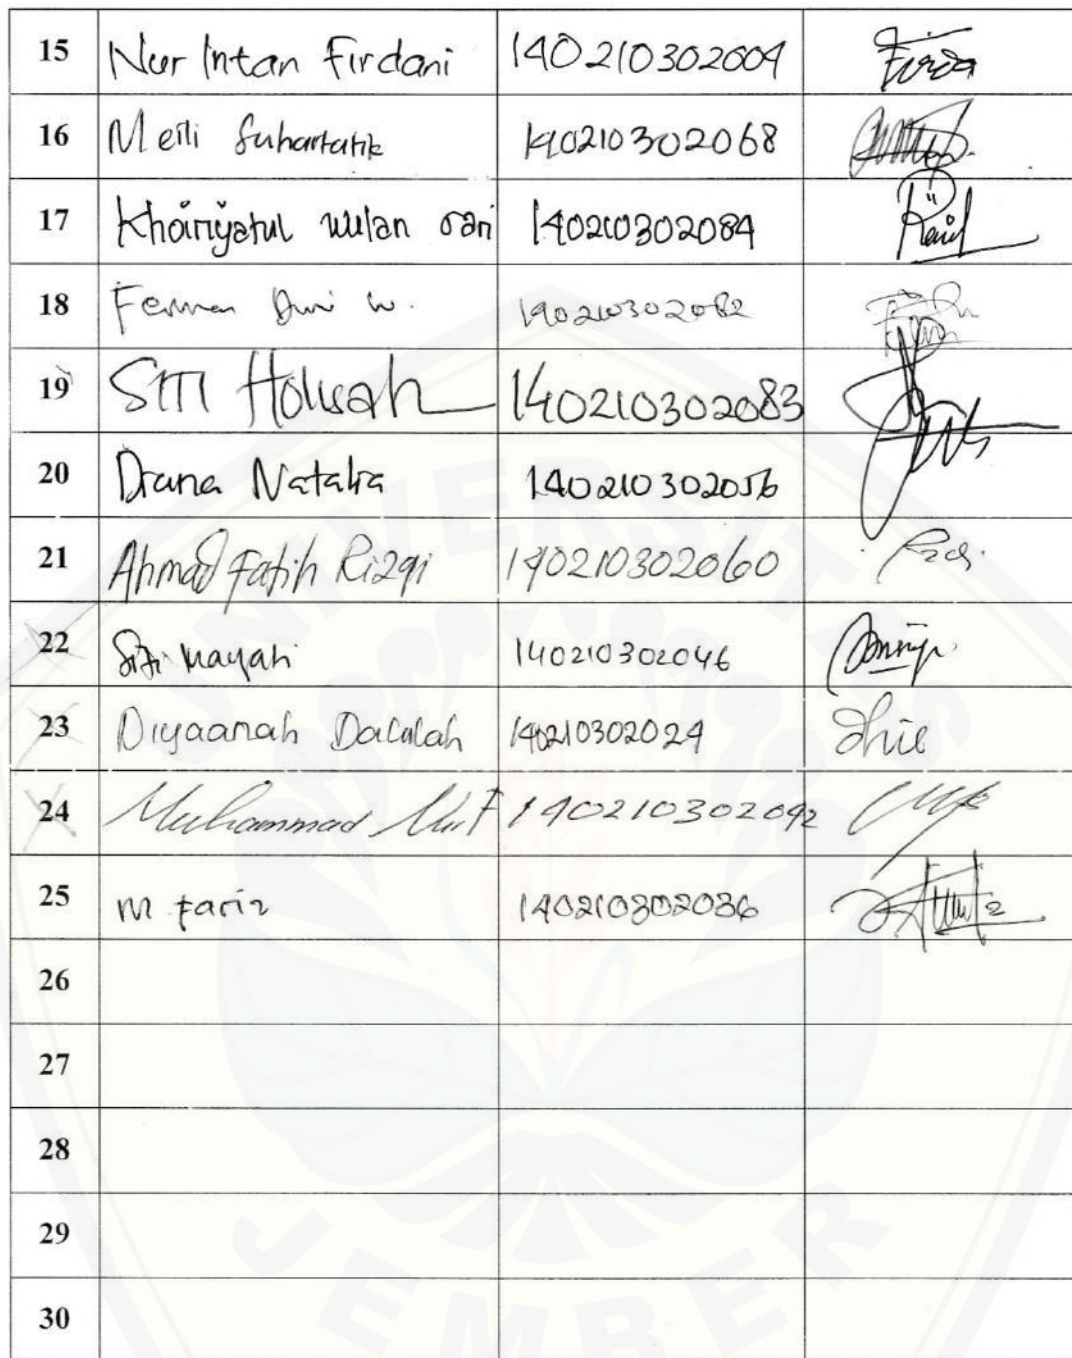 15 Nur Intan Firdani 140210302004 Firda
16 Meili Suhartatik 140210302068
17 Khoiriyatul wulan sari 140210302084
18 Dwi W. 140210302082
19 SITI Holisah 140210302083
20 Diana Natalia 140210302056
21 Ahmad Fatih Rizqi 140210302060
22 Siti Mayati 140210302046
23 Diyaanah Dalalah 140210302024 dhie
24 Muhammad Nur F 140210302092
25 M Fariz 140210302036
26
27
28
29
30
UNIVERSITAS
JEMBER